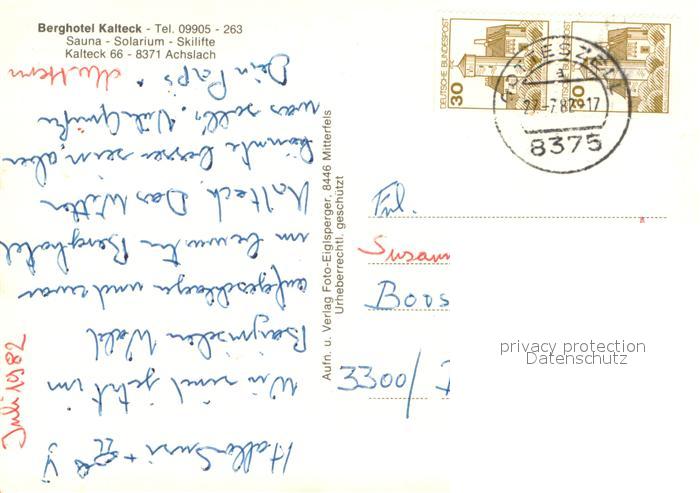 Berghotel Kalteck - Tel. 09905 - 263
Sauna - Solarium - Skilifte
Kalteck 66 - 8371 Achslach
Juli 1982
Hallo Susi +
Wir sind jetzt im
Bayrischen Wald
aufgeschlagen und zwar
im Berghotel
Kalteck. Das Wetter
könnte besser sein, aber
was solls. Viele Grüße
Dein Paps +
Aufn. u. Verlag Foto-Eiglsperger, 8446 Mitterfels
Urheberrechtl. geschützt
DEUTSCHE BUNDESPOST
30
DEUTSCHE BUNDESPOST
30
a
27.-7.82-17
8375
Frl.
Susann
Boos
3300/
privacy protection
Datenschutz